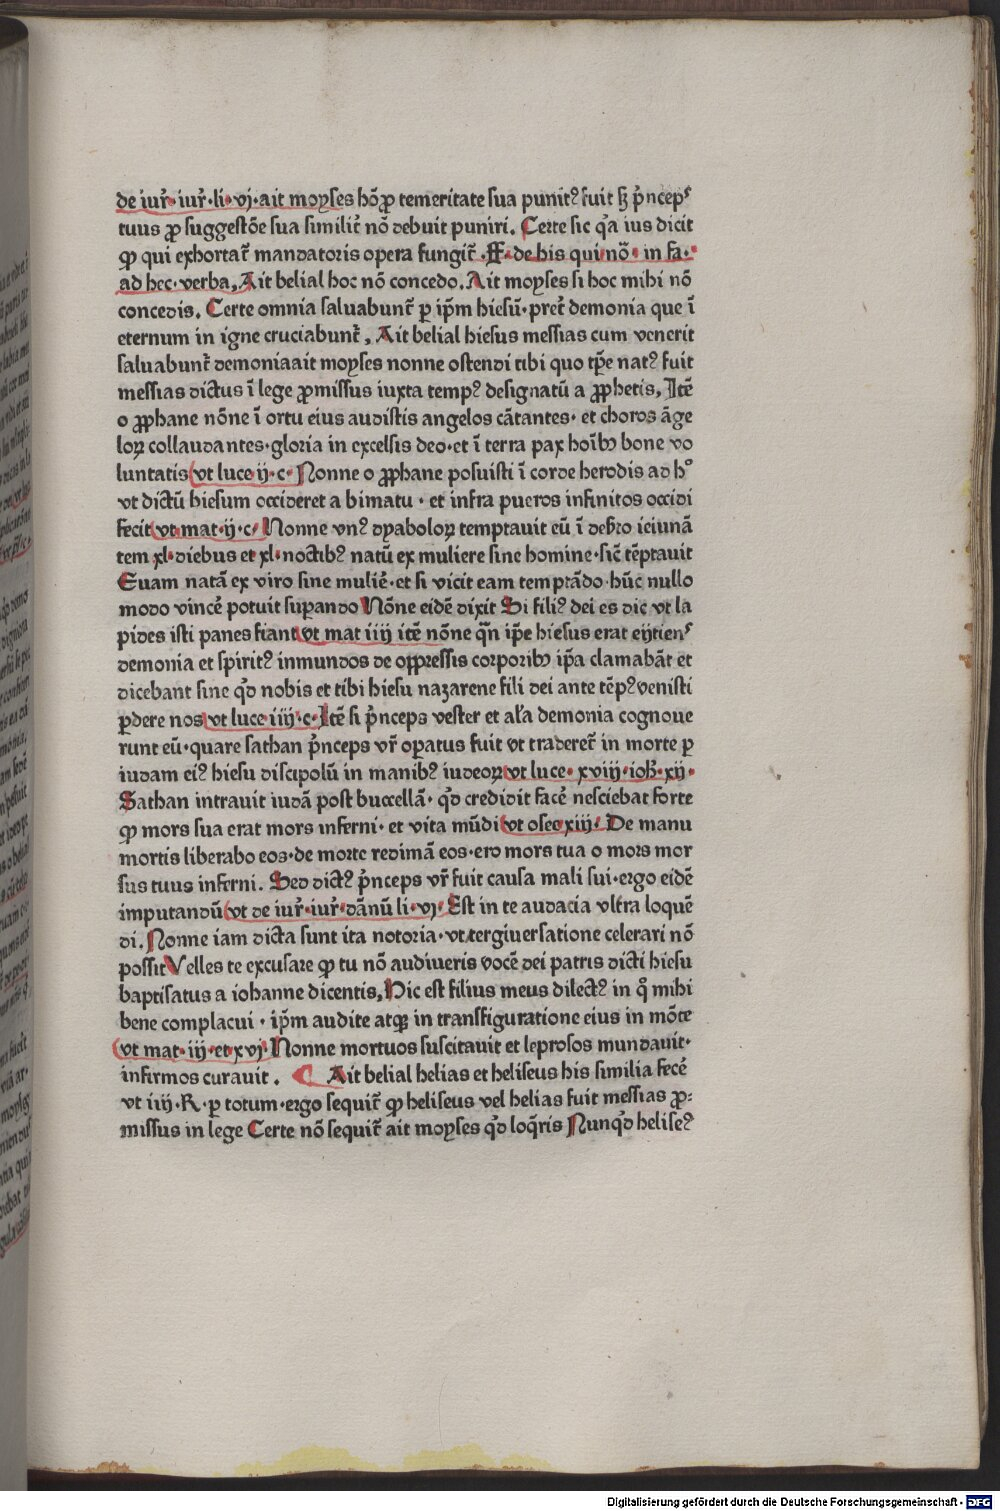 de iur̄·iur̄·li·vj·ait moyses hō ꝓ temeritate sua punitꝰ fuit sꝫ p̄ncepˢ
tuus ꝓ suggestōe sua similit̄ nō debuit puniri. Certe sic qͣa ius dicit
ꝙ qui exhortat̄ mandatoris opera fungit̄·ff·de his qui nō·in fa·
ad hec·verba, Ait belial hoc nō concedo. Ait moyses si hoc mihi nō
concedis. Certe omnia saluabunt̄ ꝑ ip̄m hiesū·pret̄ demonia que ī
eternum in igne cruciabunt̄, Ait belial hiesus messias cum venerit
saluabunt̄ demoniaait moyses nonne ostendi tibi quo tp̄e natꝰ fuit
messias dictus ī lege ꝓmissus iuxta tempꝰ designatū a ꝓphetis, Itē
o ꝓphane nōne ī ortu eius audistis angelos cātantes·et choros āge
loꝝ collaudantes·gloria in excelsis deo·et ī terra pax hoībꝫ bone vo
luntatis vt luce ij·c·Nonne o ꝓphane posuisti ī corde herodis ad hº
vt dictū hiesum occideret a bimatu·et infra pueros infinitos occidi
fecit vt mat·ij·c·Nonne vnꝰ dyaboloꝝ temptauit eū ī deb̄to iciunā
tem xl·diebus et xl·noctibꝰ natū ex muliere sine homine·sic̄ tēptauit
Euam natā ex viro sine mulie̅·et si vicit eam temptādo·hūc nullo
modo vince̅ potuit suꝑando Nōne eidē dixit Si filiꝰ dei es dic vt la
pides isti panes fiant vt mat iiij itē nōne qn̄ ip̄e hiesus erat eijtienˢ
demonia et spiritꝰ inmundos de oppressis corporibꝫ ip̄a clamabāt et
dicebant sine qͦd nobis et tibi hiesu nazarene fili dei ante tēpꝰ venisti
ꝑdere nos vt luce iiij·c·Itē si p̄nceps vester et al̄a demonia cognoue
runt eū·quare sathan p̄nceps vr̄ oꝑatus fuit vt traderet̄ in morte ꝑ
iudam eiꝰ hiesu discipolū in manibꝰ iudeoꝝ vt luce·xviij·ioh̄·xij·
Sathan intrauit iudā post buccellā·qͦd credidit face̅ nesciebat forte
ꝙ mors sua erat mors inferni·et vita mūdi vt osee xiij·De manu
mortis liberabo eos·de morte redimā eos·ero mors tua o mors mor
sus tuus inferni. Sed dictꝰ p̄nceps vr̄ fuit causa mali sui·ergo eidē
imputandū vt de iur̄·iur̄·dānū li·vj·Est in te audacia vltra loquē
di. Nonne iam dicta sunt ita notoria·vt tergiuersatione celerari nō
possit Velles te excusare ꝙ tu nō audiueris vocē dei patris dicti hiesu
baptisatus a iohanne dicentis, Hic est filius meus dilectꝰ in qͦ mihi
bene complacui·ip̄m audite atqꝫ in transfiguratione eius in mōte
vt mat·iij·et xvj·Nonne mortuos suscitauit et leprosos mundauit·
infirmos curauit. Ait belial helias et heliseus his similia fece̅
vt iiij·R·ꝑ totum·ergo sequit̄ ꝙ heliseus vel helias fuit messias ꝓ⸗
missus in lege Certe nō sequit̄ ait moyses qͦd loq̄ris Nunqͦd heliseꝰ
Digitalisierung gefördert durch die Deutsche Forschungsgemeinschaft - DFG